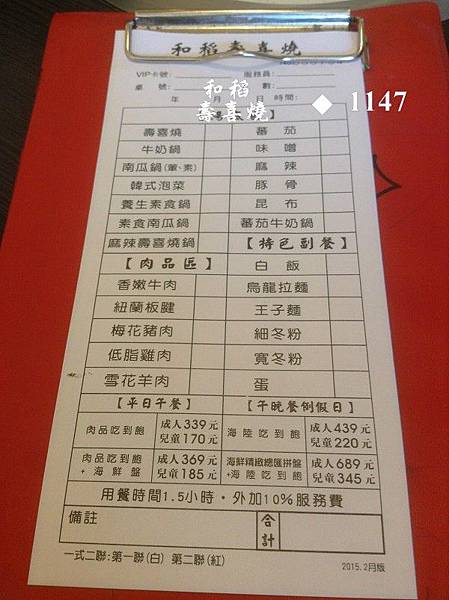 和稻壽喜燒
VIP卡號： 服務員：
桌 號： 數：
年 月 日 時間：
和稻
壽喜燒
◆ 1147
】
壽喜燒 蕃茄
牛奶鍋 味噌
南瓜鍋(葷、素) 麻辣
韓式泡菜 豚骨
養生素食鍋 昆布
素食南瓜鍋 蕃茄牛奶鍋
麻辣壽喜燒鍋 【特色副餐】
【肉品區】 白飯
香嫩牛肉 烏龍拉麵
紐蘭板腱 王子麵
梅花豬肉 細冬粉
低脂雞肉 寬冬粉
雪花羊肉 蛋
【平日午餐】 【午晚餐例假日】
肉品吃到飽 成人339元 兒童170元 海陸吃到飽 成人439元 兒童220元
肉品吃到飽 +海鮮盤 成人369元 兒童185元 海鮮精緻總匯拼盤 +海陸吃到飽 成人689元 兒童345元
用餐時間1.5小時・外加10%服務費
備註 合計
一式二聯:第一聯(白) 第二聯(紅)
2015.2月版